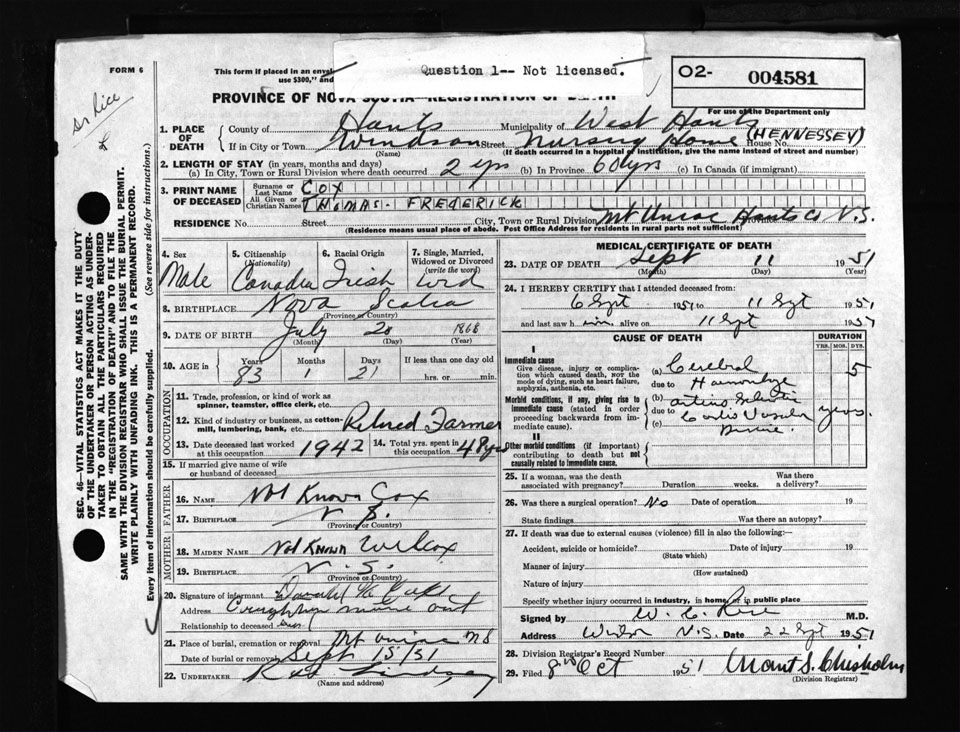 FORM 6
Dr Rice
This form if placed in an envel
use $300," and
Question 1-- Not licensed.
O2- 004581
For use of the Department only
PROVINCE OF NOVA SCOTIA—REGISTRATION OF DEATH
1. PLACE OF DEATH { County of Hants Municipality of West Hants
If in City or Town Windsor (Name) Street Nursing Home House No. (HENNESSEY)
(If death occurred in a hospital of institution, give the name instead of street and number)
2. LENGTH OF STAY (in years, months and days)
(a) In City, Town or Rural Division where death occurred 2 yrs (b) In Province 60 yrs (c) In Canada (if immigrant)
3. PRINT NAME OF DECEASED { Surname or Last Name COX
All Given or Christian Names THOMAS- FREDERICK
RESIDENCE No. Street City, Town or Rural Division Mt Uniac Hants Co N.S. Province
(Residence means usual place of abode. Post Office Address for residents in rural parts not sufficient)
4. Sex Male
5. Citizenship (Nationality) Canadia
6. Racial Origin Irish
7. Single, Married, Widowed or Divorced (write the word) Wid
8. BIRTHPLACE Nova Scotia
(Province or Country)
9. DATE OF BIRTH July 20 1868
(Month) (Day) (Year)
10. AGE in { Years 83 Months 1 Days 21 If less than one day old hrs. or min.
OCCUPATION
11. Trade, profession, or kind of work as spinner, teamster, office clerk, etc.
12. Kind of industry or business, as cotton-mill, lumbering, bank, etc. Retired Farmer
13. Date deceased last worked at this occupation 1942
14. Total yrs. spent in this occupation 48 yrs
15. If married give name of wife or husband of deceased
FATHER
16. NAME Not Known Cox
17. BIRTHPLACE N S.
(Province or Country)
MOTHER
18. MAIDEN NAME Not Known Wilcox
19. BIRTHPLACE N. S.
(Province or Country)
20. Signature of informant
Address Creighton mine Ont
Relationship to deceased
21. Place of burial, cremation or removal Mt Uniac N S
Date of burial or removal Sept 15/51
22. UNDERTAKER Lindsay
(Name and address)
MEDICAL CERTIFICATE OF DEATH
23. DATE OF DEATH Sept 11 1951
(Month) (Day) (Year)
24. I HEREBY CERTIFY that I attended deceased from:
6 Sept 1951 to 11 Sept 1951
and last saw him alive on 11 Sept 1951
CAUSE OF DEATH
DURATION
YRS. MOS. DYS.
I
Immediate cause
Give disease, injury or complication which caused death, not the mode of dying, such as heart failure, asphyxia, asthenia, etc.
(a) Cerebral 5
due to Haemorrhage
Morbid conditions, if any, giving rise to immediate cause (stated in order proceeding backwards from immediate cause).
(b)
due to years.
(c)
II
Other morbid conditions (if important) contributing to death but not causally related to immediate cause.
25. If a woman, was the death associated with pregnancy? Duration weeks. Was there a delivery?
26. Was there a surgical operation? No Date of operation 19
State findings Was there an autopsy?
27. If death was due to external causes (violence) fill in also the following:
Accident, suicide or homicide? Date of injury 19
(State which)
Manner of injury
(How sustained)
Nature of injury
Specify whether injury occurred in industry, in home, or in public place
Signed by W. C. Rice M.D.
Address Windsor N.S. Date 22 Sept 1951
28. Division Registrar's Record Number
29. Filed 8th Oct 1951 Grant S. Chisholm
(Division Registrar)
SEC. 46—VITAL STATISTICS ACT MAKES IT THE DUTY
OF THE UNDERTAKER OR PERSON ACTING AS UNDER-
TAKER TO OBTAIN ALL THE PARTICULARS REQUIRED
IN THE "REGISTRATION OF DEATH" AND TO FILE THE
SAME WITH THE DIVISION REGISTRAR WHO SHALL ISSUE THE BURIAL PERMIT.
WRITE PLAINLY WITH UNFADING INK. THIS IS A PERMANENT RECORD.
Every item of information should be carefully supplied. (See reverse side for instructions.)